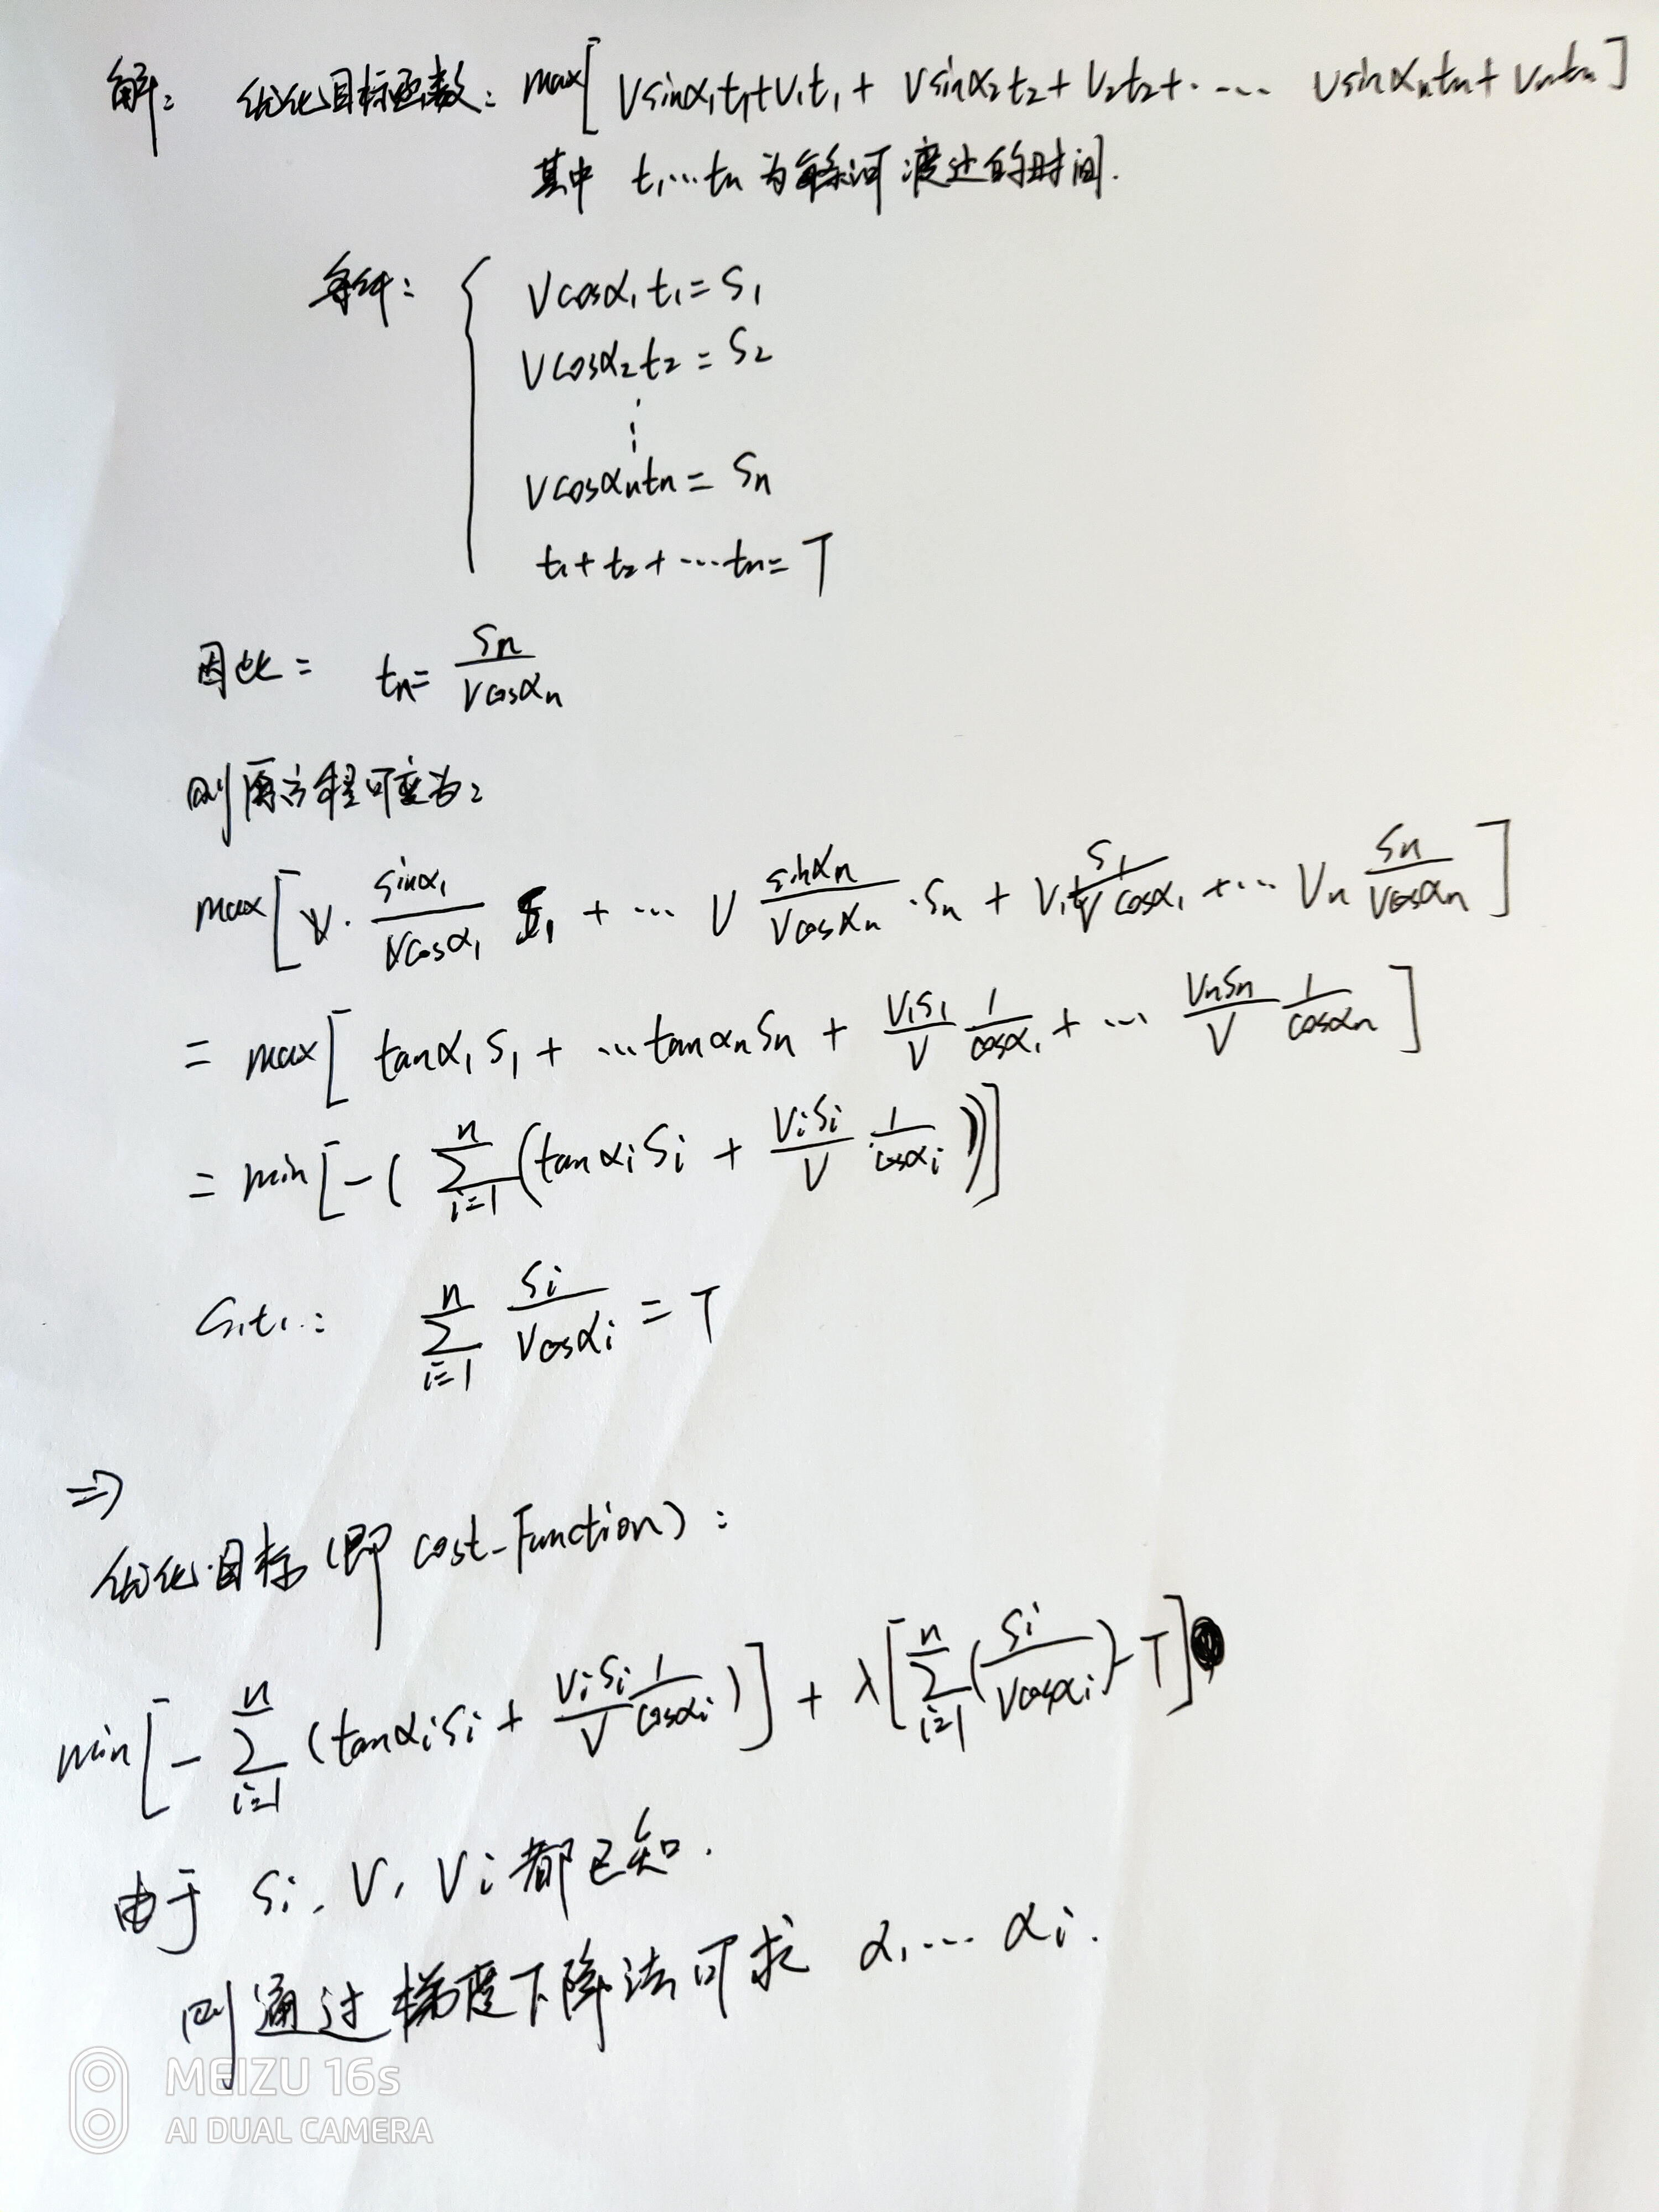 解: 优化目标函数: max[ Vsinα₁t₁+V₁t₁ + Vsinα₂t₂+V₂t₂+ ⋯ Vsinαₙtₙ+Vₙtₙ ]
其中 t₁⋯tₙ 为每条河渡过的时间.
条件: { Vcosα₁t₁=S₁
Vcosα₂t₂=S₂
⋮
Vcosαₙtₙ=Sₙ
t₁+t₂+⋯tₙ=T
因此: tₙ= Sₙ/(Vcosαₙ)
则原方程可变为:
max[ V· sinα₁/(Vcosα₁) S₁ + ⋯ V sinαₙ/(Vcosαₙ) ·Sₙ + V₁ S₁/(Vcosα₁) +⋯ Vₙ Sₙ/(Vcosαₙ) ]
= max[ tanα₁S₁ + ⋯tanαₙSₙ + V₁S₁/V 1/cosα₁ + ⋯ VₙSₙ/V 1/cosαₙ ]
= min[-( ∑ⁿᵢ₌₁(tanαᵢSᵢ + VᵢSᵢ/V · 1/cosαᵢ))]
S.t.: ∑ⁿᵢ₌₁ Sᵢ/(Vcosαᵢ) = T
⇒
优化目标(即 cost-Function):
min[- ∑ⁿᵢ₌₁ (tanαᵢSᵢ + VᵢSᵢ/V 1/cosαᵢ)] + λ[∑ⁿᵢ₌₁(Sᵢ/(Vcosαᵢ))-T]
由于 Sᵢ, V, Vᵢ都已知.
则通过梯度下降法可求 α₁⋯ αᵢ.
MEIZU 16s
AI DUAL CAMERA